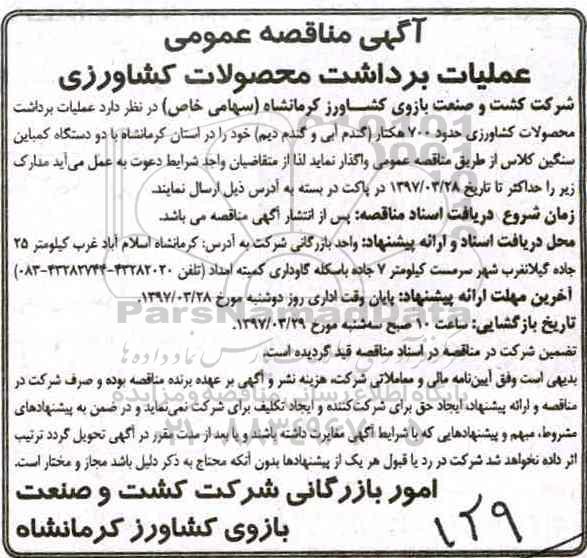 آگهی مناقصه عمومی
عملیات برداشت محصولات کشاورزی
شرکت کشت و صنعت بازوی کشاورز کرمانشاه (سهامی خاص) در نظر دارد عملیات برداشت
محصولات کشاورزی حدود ۷۰۰ هکتار (گندم آبی و گندم دیم) خود را در استان کرمانشاه با دو دستگاه کمباین
سنگین کلاس از طریق مناقصه عمومی واگذار نماید لذا از متقاضیان واجد شرایط دعوت به عمل می‌آید مدارک
زیر را حداکثر تا تاریخ ۱۳۹۷/۰۳/۲۸ در پاکت در بسته به آدرس ذیل ارسال نمایند.
زمان شروع دریافت اسناد مناقصه: پس از انتشار آگهی مناقصه می باشد.
محل دریافت اسناد و ارائه پیشنهاد: واحد بازرگانی شرکت به آدرس: کرمانشاه اسلام آباد غرب کیلومتر ۲۵
جاده گیلانغرب شهر سرمست کیلومتر ۷ جاده باسکله گاوداری کمیته امداد (تلفن ۴۳۲۸۲۰۲۰-۴۳۲۸۳۷۴۴-۰۸۳)
آخرین مهلت ارائه پیشنهاد: پایان وقت اداری روز دوشنبه مورخ ۱۳۹۷/۰۳/۲۸.
تاریخ بازگشایی: ساعت ۱۰ صبح سه‌شنبه مورخ ۱۳۹۷/۰۳/۲۹.
تضمین شرکت در مناقصه در اسناد مناقصه قید گردیده است.
بدیهی است وفق آیین‌نامه مالی و معاملاتی شرکت، هزینه نشر و آگهی بر عهده برنده مناقصه بوده و صرف شرکت در
مناقصه و ارائه پیشنهاد، ایجاد حق برای شرکت‌کننده و ایجاد تکلیف برای شرکت نمی‌نماید و در ضمن به پیشنهادهای
مشروط، مبهم و پیشنهادهایی که با شرایط آگهی مغایرت داشته باشند و یا بعد از مدت مقرر در آگهی تحویل گردد ترتیب
اثر داده نخواهد شد شرکت در رد یا قبول هر یک از پیشنهادها بدون آنکه محتاج به ذکر دلیل باشد مجاز و مختار است.
امور بازرگانی شرکت کشت و صنعت
بازوی کشاورز کرمانشاه
۱۲۹
ParsNamadData
پایگاه اطلاع رسانی مناقصه و مزایده